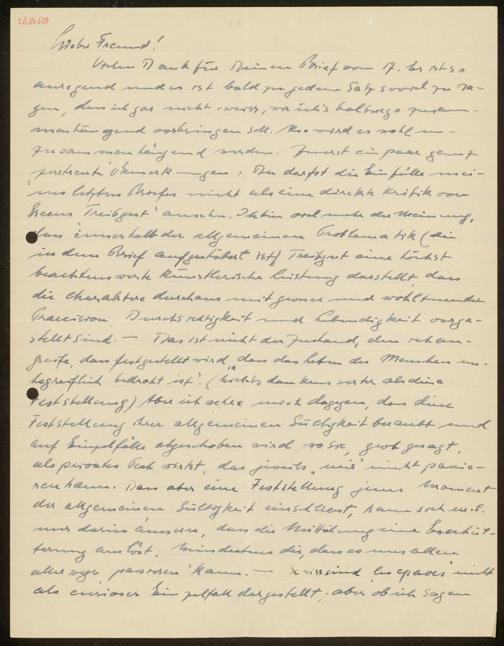 Lieber Freund!
Vielen Dank für Deinen Brief vom 17. Er ist so
anregend und es ist bald zu jedem Satz soviel zu sa-
gen, dass ich gar nicht weiss, wie ich's halbwegs zusam-
menhängend vorbringen soll. Also wird es wohl un-
zusammenhängend werden. Zuerst ein paar ganz
Bemerkungen: Du darfst die Einfälle mei-
nes letzten Briefes nicht als eine direkte Kritik von
"Treibgut" ansehen. Ich bin viel mehr der Meinung,
dass innerhalb der allgemeinen Problematik (die
in dem Brief aufgestöbert ist) Treibgut eine höchst
beachtenswerte künstlerische Leistung darstellt, dass
die Charaktere durchaus mit grosser und wohltuender
Praecision, Durchsichtigkeit und Lebendigkeit darge-
stellt sind. — Das ist nicht der Zustand, den ich an-
greife, dass festgestellt wird, dass das Leben des Menschen un-
begreiflich bedroht ist. (Nichts dankenswerter als diese
Feststellung) Aber ich sehe mich dagegen, dass diese
Feststellung ihrer allgemeinen Gültigkeit beraubt und
auf Einzelfälle abgeschoben wird, so sie, grob gesagt,
als privates Pech wirkt, das jeweils "mir" nicht passie-
ren kann. Dass aber eine Feststellung jenes Moment
der allgemeinen Gültigkeit einschliesst, kann sich m.E.
nur darin äussern, dass die Mitteilung eine Erschüt-
terung auslöst, mindestens die, dass es uns allen
allewege "passieren" kann. — nicht
als curioser Einzelfall dargestellt, aber ob ich sagen